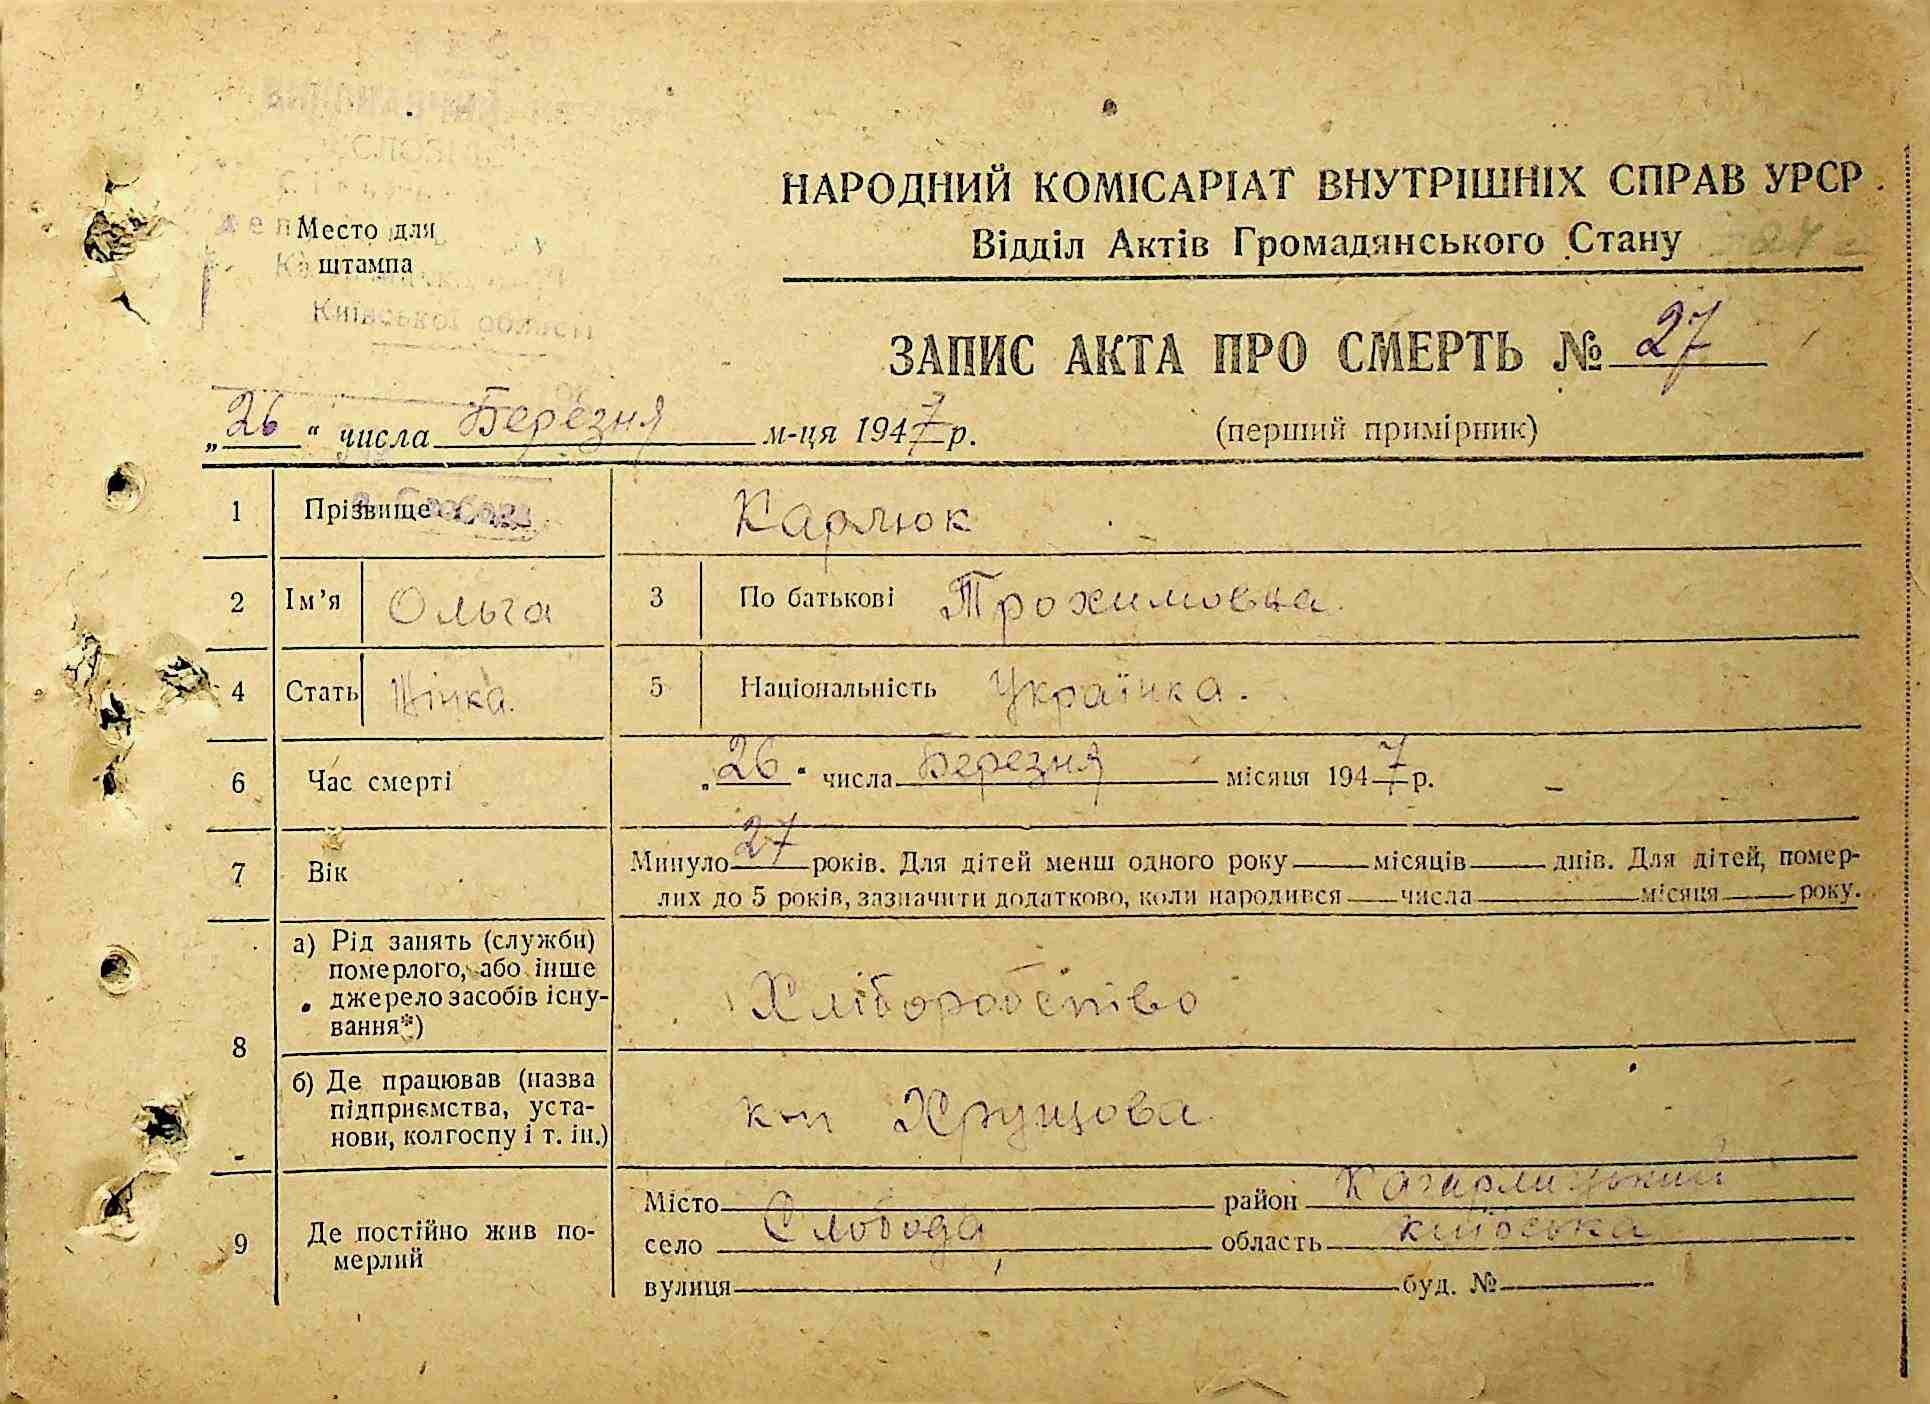 НАРОДНИЙ КОМІСАРІАТ ВНУТРІШНІХ СПРАВ УРСР
Відділ Актів Громадянського Стану
Место для
штампа
Київської області
ЗАПИС АКТА ПРО СМЕРТЬ № 27
„26“ числа Березня м-ця 1947 р.
(перший примірник)
1 Прізвище Карлюк
2 Ім’я Ольга 3 По батькові Трохимовна.
4 Стать Жінка. 5 Національність Українка.
6 Час смерті „26“ числа Березня місяця 1947 р.
7 Вік Минуло 27 років. Для дітей менш одного року місяців днів. Для дітей, помер-
лих до 5 років, зазначити додатково, коли народився числа місяця року.
8 а) Рід занять (служби)
померлого, або інше
джерело засобів існу-
вання*)
Хліборобство
б) Де працював (назва
підприємства, уста-
нови, колгоспу і т. ін.)
Хрущова
9 Де постійно жив по-
мерлий
Місто район Кагарлицький
село Слобода область київська
вулиця буд. №